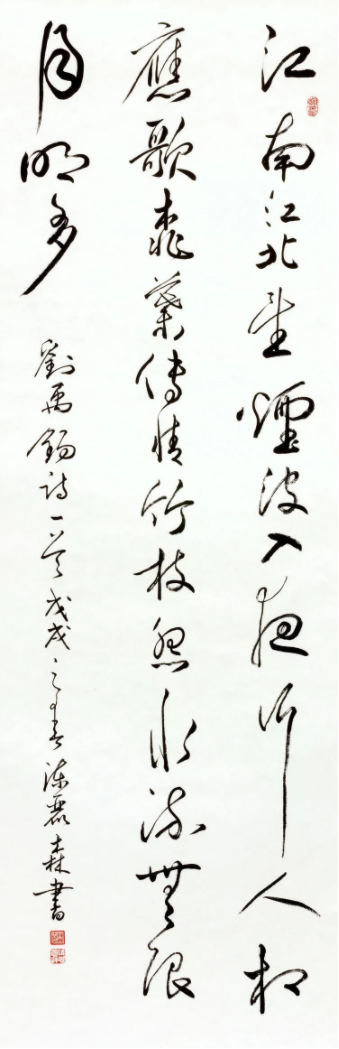 江南江北望煙波入夜行人相
應歌桃葉傳情竹枝怨水流無限
月明多
劉禹錫詩一首戊戌之春陳磊森書